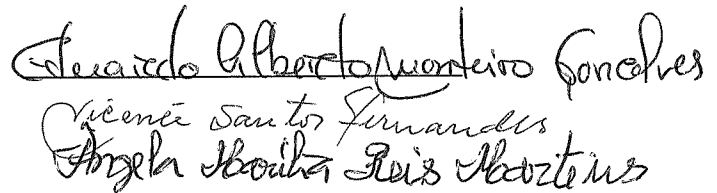 Eduardo Alberto Monteiro Gonçalves
Vicente Santos Fernandes
Ângela Maria Reis Martins